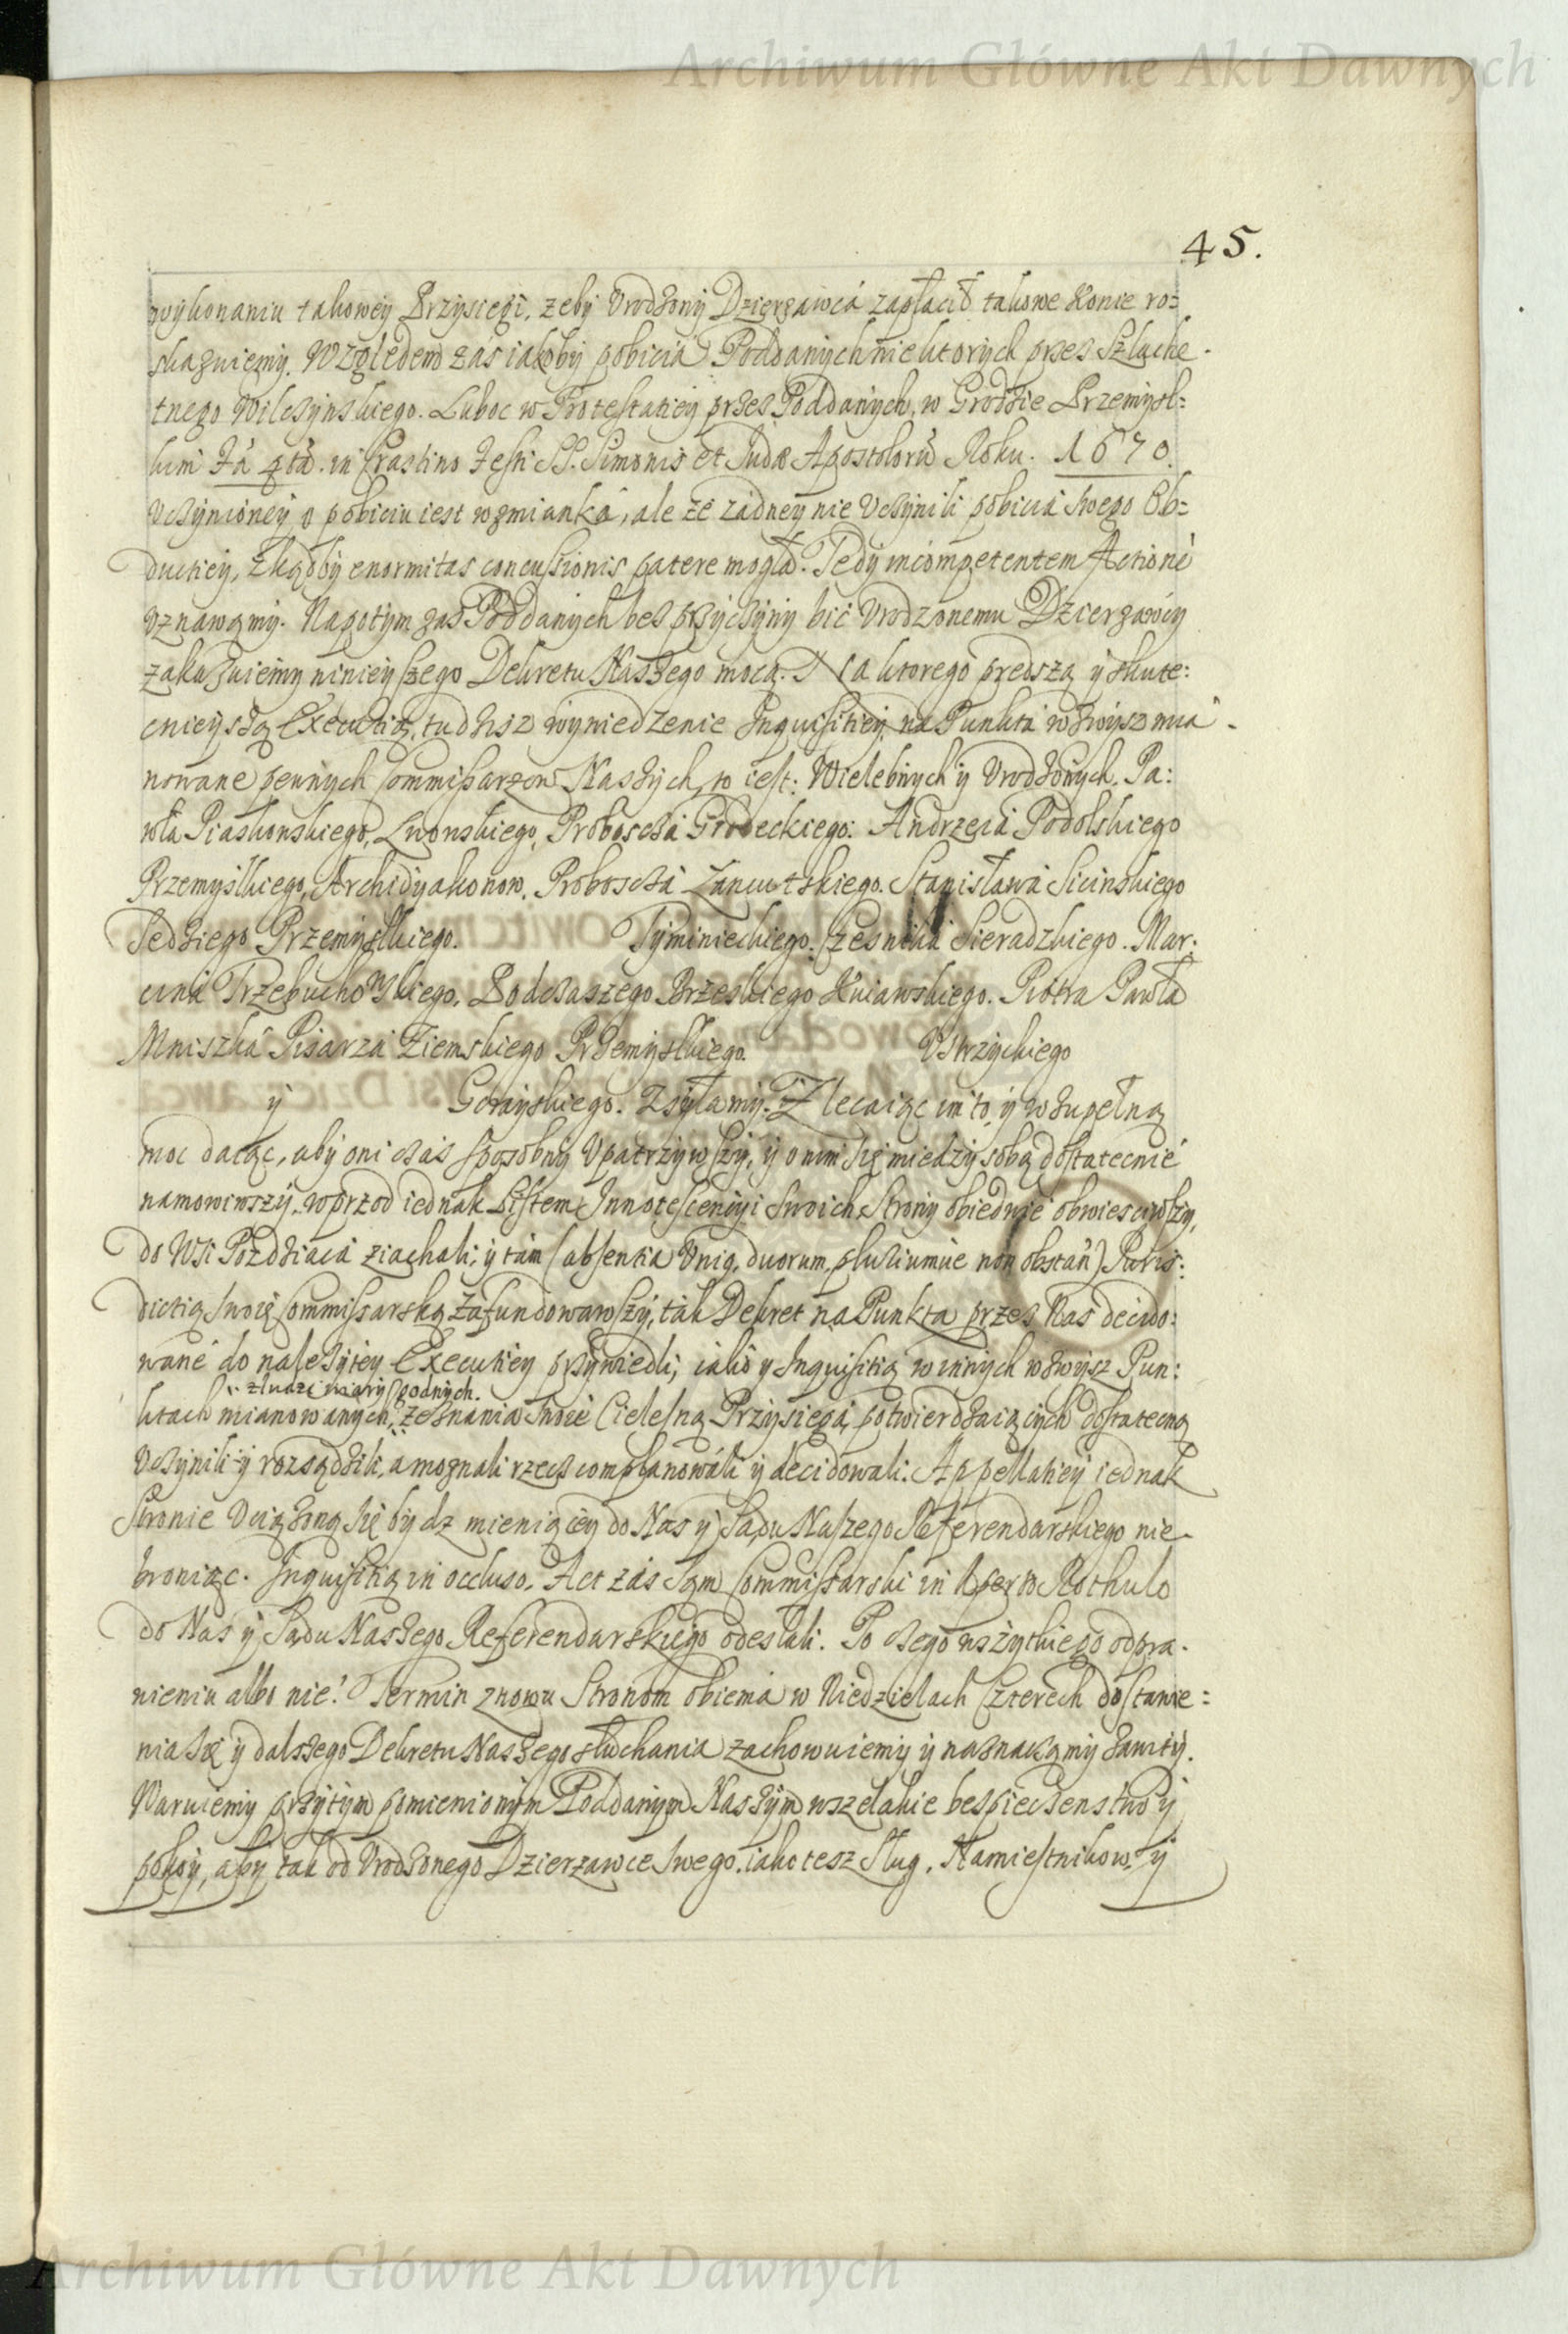 Archiwum Główne Akt Dawnych
45.
wykonaniu takowey Przysięgi, zeby Vrodzony Dzierzawca zapłacił takowe konie ro=
skazuiemy. Względem zás iakoby pobicia Poddanych niektorych przez Szlache-
tnego Wilczynskiego. Luboc w Protestatiey przez Poddanych, w Grodzie Przemysl=
kim Fa 4ta in Crastino Festi SS. Simonis et Judæ Apostolorũ Roku. 1670.
Vczynioney o pobiciu iest wzmianka, ale ze zadney nie Vczynili pobicia swego Ob=
ductiey, zkądby enormitas concussionis patere mogła. Tedy incompetentem Actionẽ
Vznawamy. Napotym zas Poddanych bez przyczyny bić Vrodzonemu Dzierzawcy
zakazuiemy ninieyszego Dekretu Naszego mocą. Dla ktorego prędszą y skute:
cznieyszą Executią, tudzisz wywiedzenie Inquisitiey na Punkta wzwysz mia-
nowane pewnych Commissarzow Naszych, to iest: Wielebnych y Vrodzonych. Pa:
wła Piaskowskiego, Lwowskiego, Proboscza Grodeckiego: Andrzeia Podolskiego
Przemyślkiego, Archidyakonow, Proboscza Łancutskiego. Stanisława Sicinskiego
Sędziego Przemyślkiego. Tyminieckiego, Czesnika Sieradzkiego. Mar:
cina Trzebuchowskiego, Podczaszego Brzeskiego Kuiawskiego. Piotra Pawła
Mniszka Pisarza Ziemskiego Przemyslkiego. Vstrzyckiego
y Gorayskiego. Zsyłamy. Zlecaiąc im to, y wzupełną
moc daiąc, aby oni czas sposobny Vpatrzywszy, y o nim się miedzy sobą dostatecznie
namowiwszy, wprzod iednak Listem Innotescencyi swoich Strony obiedwie obwiesciwszy,
do Wsi Pozdziacza ziachali, y tám (absentia Vnig, duorum, pluriumue non obstan̄) Juris:
dictią swoię Commissarską zafundowawszy, ták Dekret na Punkta przez Nas decido:
wane do nalezytey Executiey przywiedli, iako y Inquisitią winnych wzwysz Pun:
z ludzi wiary godnych.
ktach mianowanych, zeznania swoie Cielesną Przysięgą potwierdzaiących dostateczną
Vczynili y rozsądzili, a moznali rzecz complanowáli y decidowali. Appellatiey iednak
Stronie Vciązoną się bydz mieniącey do Nas y Sądu Naszego Referendarskiego nie-
broniąc. Inquisitią in occluso, Act zás sąm Commissarski in Aperto Rothulo
do Nas y Sądu Naszego Referendarskiego odeslali. Po czego wszytkiego odpra-
wieniu albo nie! Termin znowu Stronom obiema w Niedzielach Czterech dostawie=
nia się y dalszego Dekretu Naszego słuchania zachowuiemy y naznaczamy zawity.
Waruiemy przytym pomienionym Poddanym Naszym wszelakie bespieczenstwo y
pokoy, aby tak od Vrodzonego Dzierzawce swego, iako tesz Sług, Namiestnikow, y
Archiwum Główne Akt Dawnych